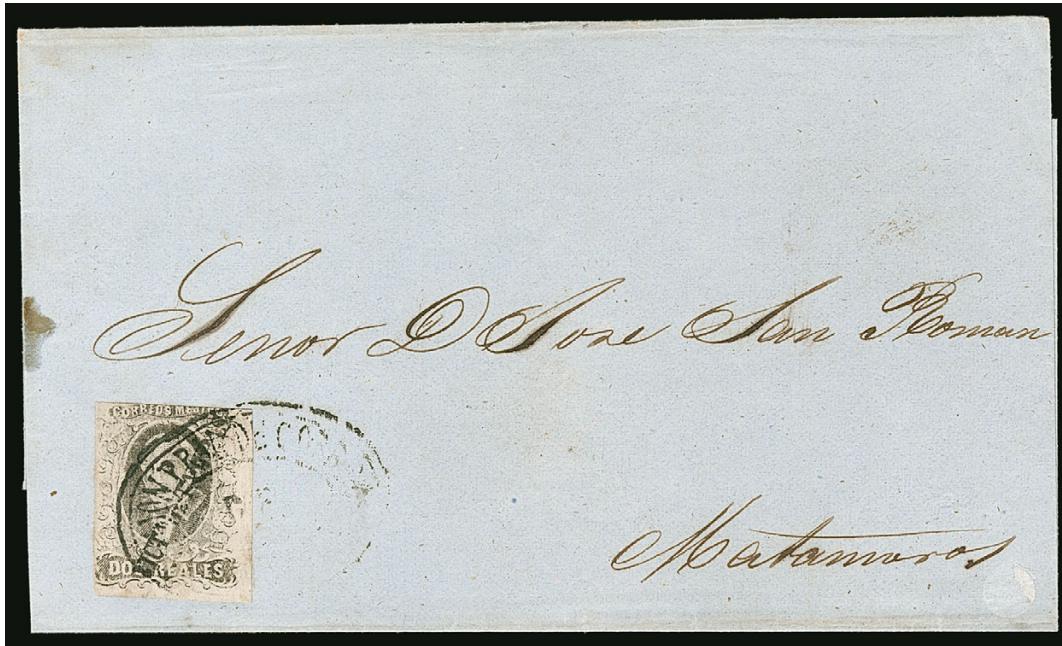 Senor D Jose San Roman
CORREOS
DOS REALES
Matamoros